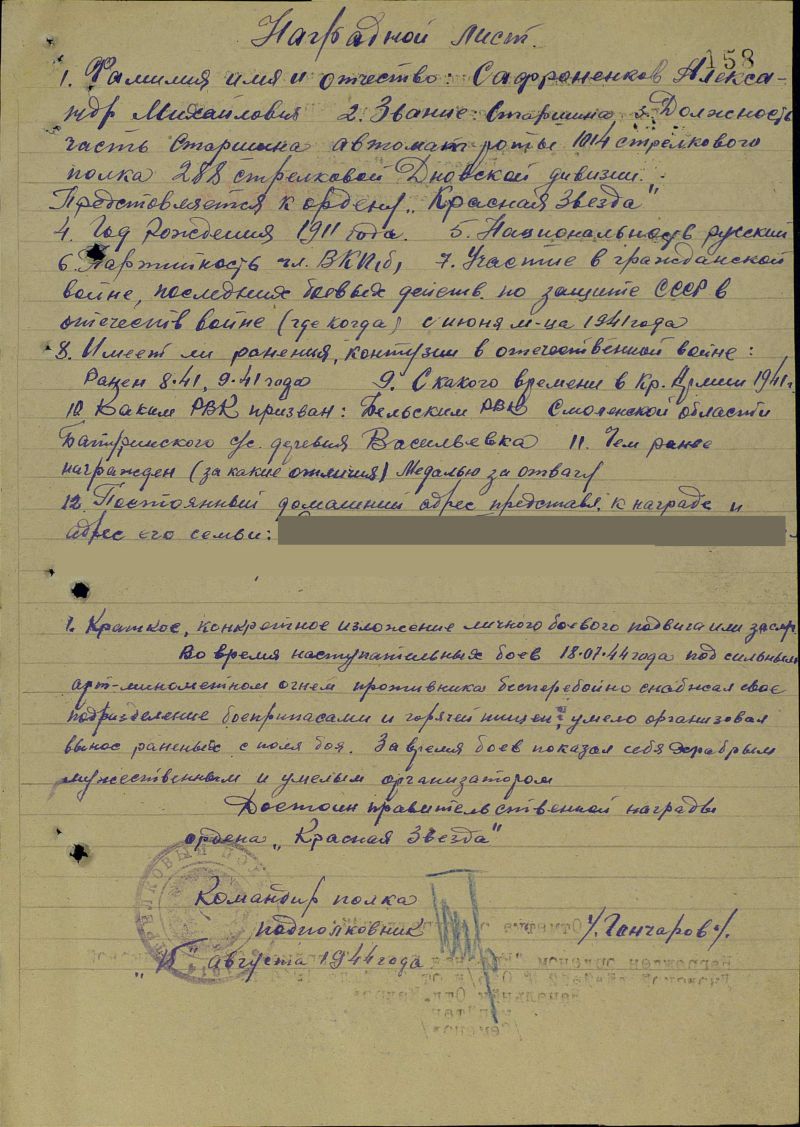 Наградной лист.
158
1. Фамилия имя и отчество: Сафроненков Алекса-
ндр Михайлович 2. Звание: Старшина 3. Должность
часть Старшина автомат роты 1014 стрелкового
полка 288 стрелковой Дновской дивизии.
Представляется к ордену „Красная Звезда"
4. Год рождения 1911 года. 5. Национальность русский
6. Партийность чл. ВКП(б) 7. Участие в гражданской
войне, последних боевых действ. по защите СССР в
отечеств войне (где когда) с июня м-ца 1941 года
8. Имеет ли ранения, контузии в отечественной войне:
Ранен 8.41, 9.41 года 9. С какого времени в Кр. Армии 1941 г.
10. Каким РВК призван: Бельским РВК Смоленской области
Батуринского с/с. деревня Васильевка 11. Чем ранее
награжден (за какие отличия) Медалью за отвагу
12. Постоянный домашний адрес представл. к награде и
адрес его семьи:
1. Краткое, конкретное изложение личного боевого подвига или заслуг
Во время наступательных боев 18.07.44 года под сильным
арт-минометном огнем противника бесперебойно снабжал свое
подразделение боеприпасами и горячей пищей, умело организовал
вынос раненых с поля боя. За время боев показал себя храбрым
мужественным и умелым организатором
Достоин правительственной награды
ордена „Красная Звезда"
Командир полка
подполковник /Ганчаров/.
"15" августа 1944 года